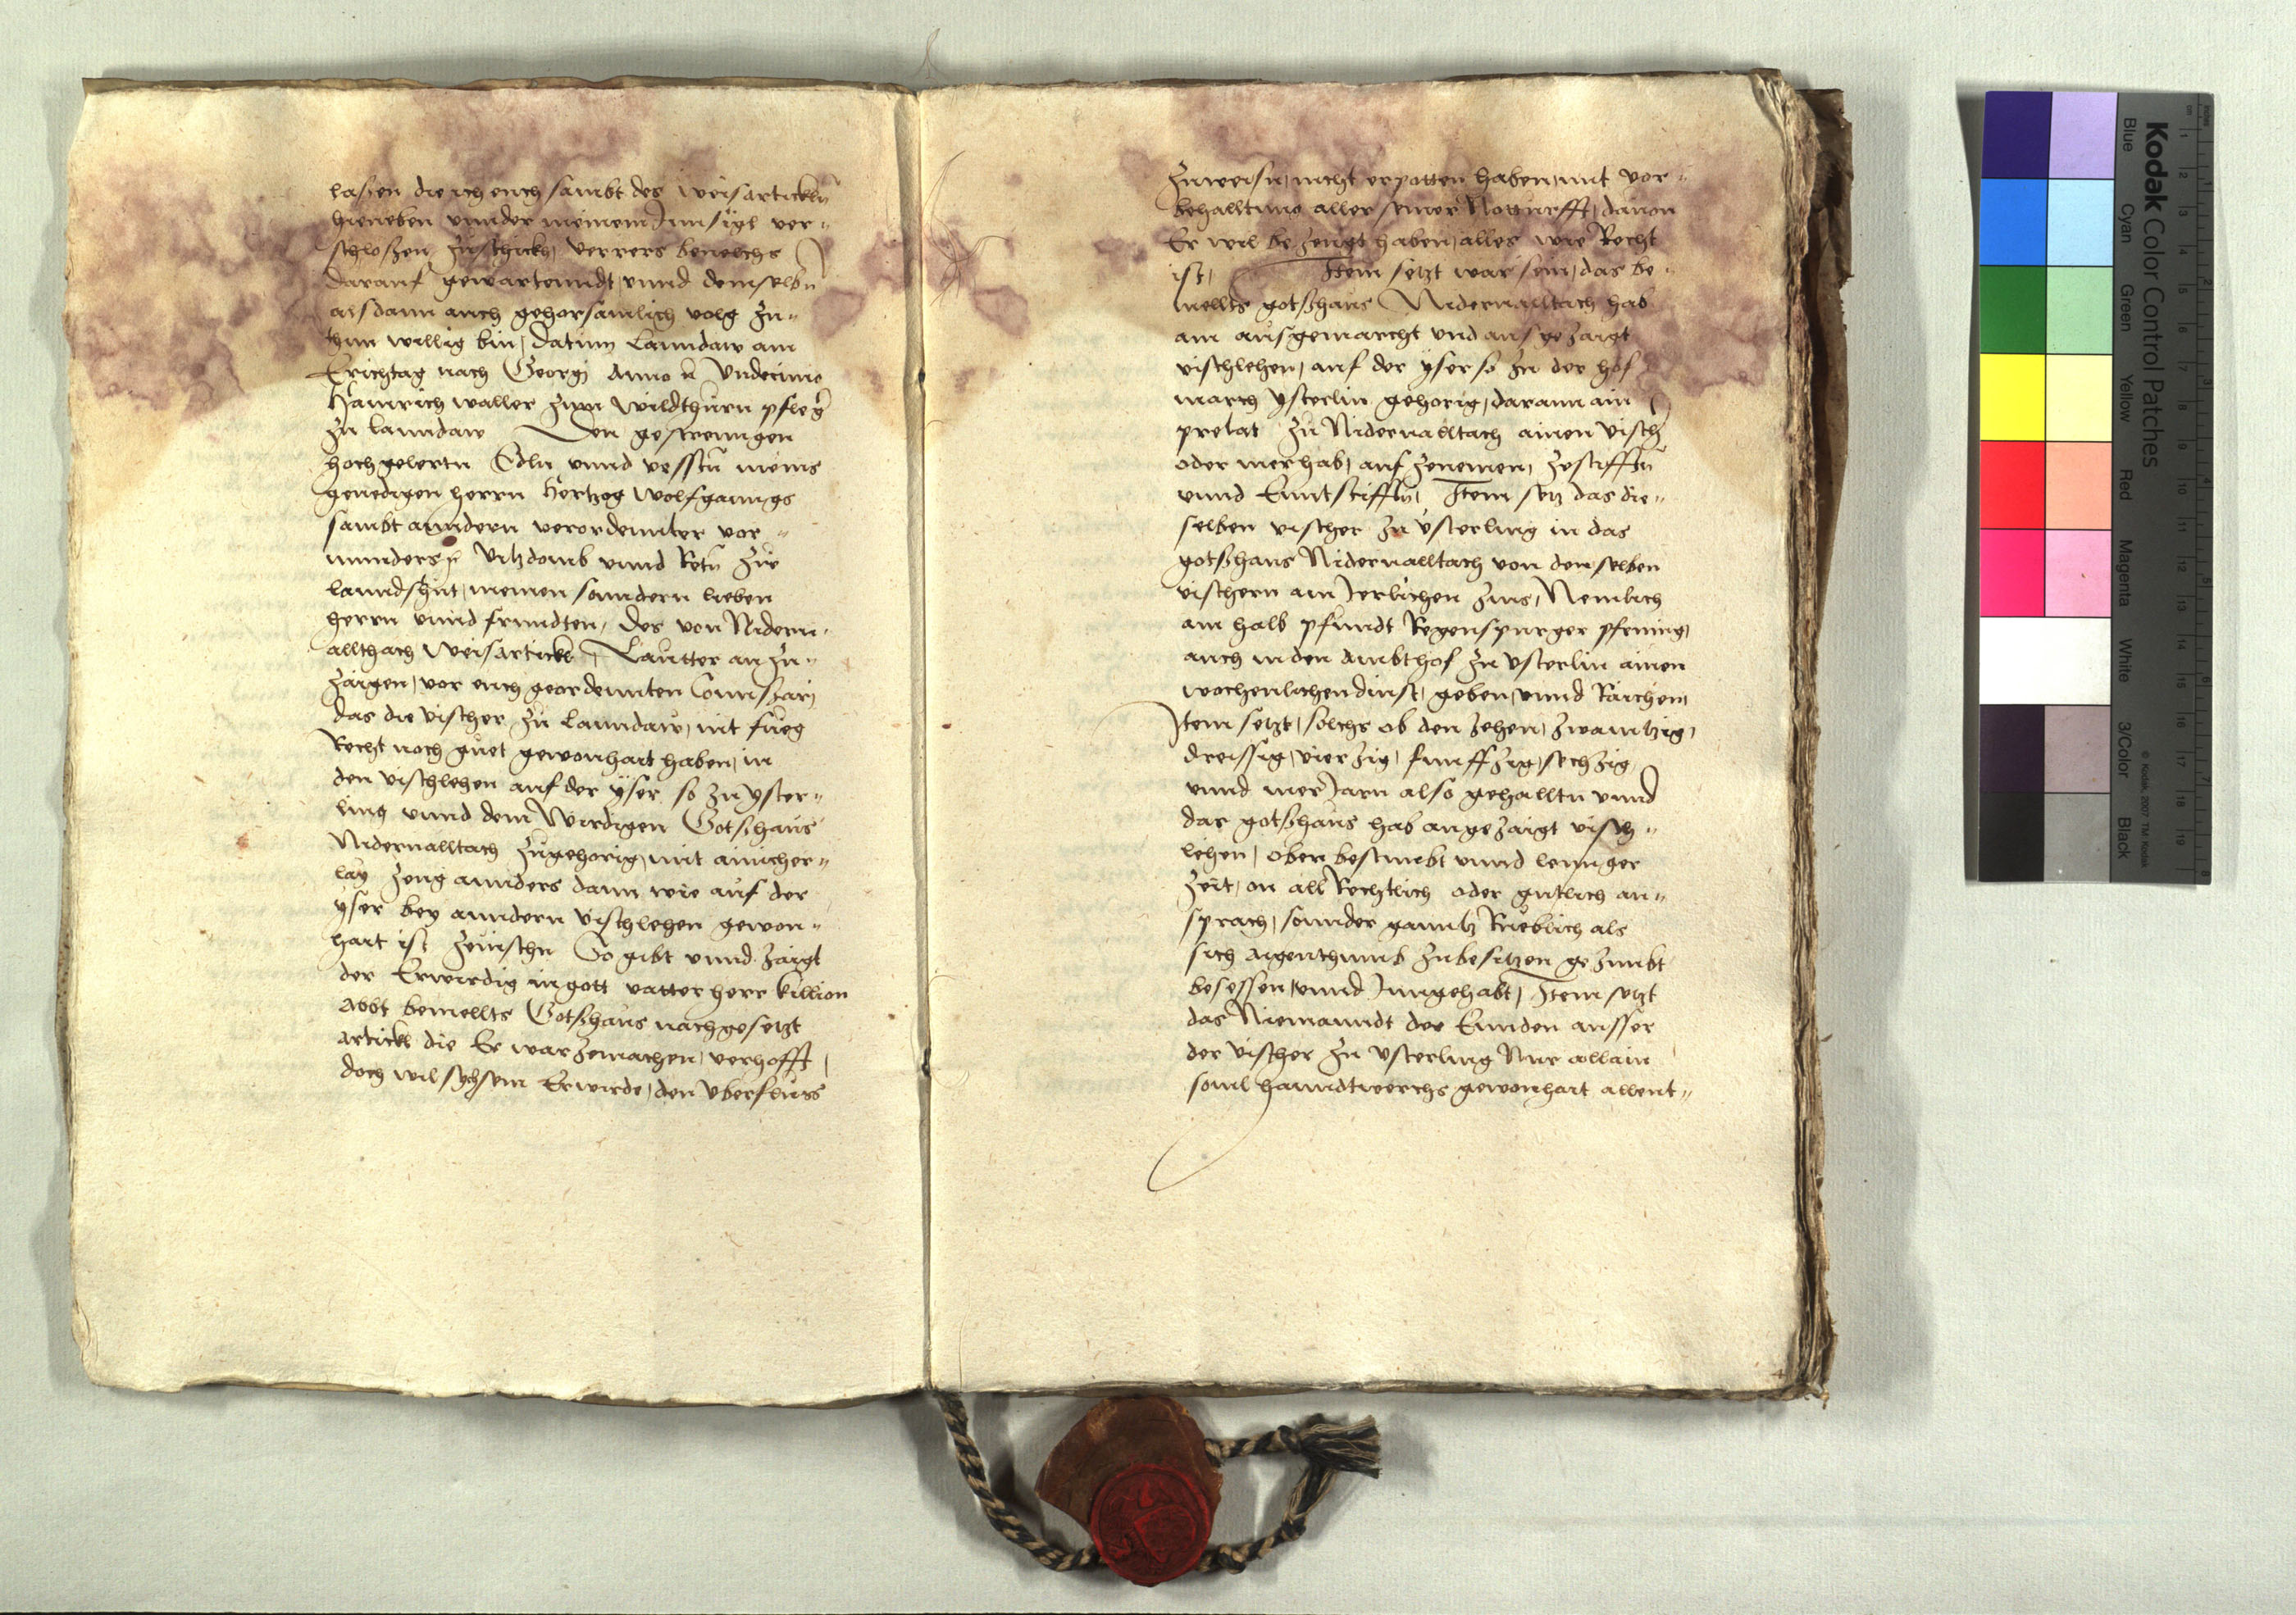 lassen die ich euch sambt des weisartickln
hieneben vnnder meinem Innsigl ver„
schlossen zuschickh, verrers beuelchs
darauf gewartenndt, vnnd demselbn
alsdann auch gehorsamlich volg zu„
thun willig bin, Datum Lanndaw am
Erichtag nach Georgj Anno undecimo
Hainrich waller zum wildthurn pfleger
zu Lanndaw Den gestrenngen
hochgelertn Edln vnnd vesstn meins
genedigen herrn Hertzog Wolfganngs
sambt anndern verordennter vor„
munders Vitzdomb vnnd Retn zu
Lanndshut, meinen sonndern lieben
herrn vnnd frundten, Des von Nidern„
alltach Weisartickl, Lautter an zu„
zaigen, vor euch geordennten Comissarj
das die vischer zu Lanndaw, nit fueg
Recht noch guet gewonhait haben, in
den vischlehen auf der yser so zu yster„
ling vnnd dem Wirdigen Gotzhaus
Nidernalltach zugehorig, mit ainicher„
lay zeug annders dann wie auf der
yser bey anndern vischlehen gewon„
hait ist zeuischn So gibt vnnd zaigt
der Erwirdig in gott vatter herr killion
Abbt bemellts Gotzhaus nachgesetzt
artickl die Er war zemachen, verhofft,
doch wil sych sein Erwirde, den vberfluss
zuweisn, nicht erpotten haben, mit vor„
behalltung aller seiner Notturfft, dauon
Er wil bezeugt haben, alles wie Recht
ist, Item setzt war sein, das be„
mellts gotzhaus Nidernalltach hab
ain ausgemarcht vnd ausgezaigt
vischlehen, auf der yser so zu der hof
march ysterlin gehorig, darann ain
prelat zu Nidernalltach ainen visch
oder mer hab, auf zenemen, zestifftn
vnnd Enntstifftn, Item setz das die„
selben vischer zu ysterling in das
gotzhaus Nidernalltach von denselben
vischern ain Jerlichen zins, Nemlich
ain halb pfundt Regenspurger pfening,
auch in den Ambthof zu ysterlin ainen
wochenlichen dinst, geben, vnnd Raichen,
Item setzt, solchs ob den zehen, zwaintzig,
dreissig, vierzig, funffzig, sechzig,
vnnd mer Jarn also gehalltn vnnd
das gotzhaus hab angezaigt visch„
lehen, ober bestimbt vnnd lennger
zeit, on all Rechtlich oder gutlich an„
sprach, sonnder ganntz Rueblich als
sich aigenthumb zubesitzen gezimbt
besessen, vnnd Inngehabt, Item setzt
das Niemanndt der Ennden ausser
der vischer zu ysterling Nur allain
souil hanndtwerchs gewonhait allent„
Kodak Color Control Patches
Blue Cyan Green Yellow Red Magenta White 3/Color Black
© Kodak, 2007 TM: Kodak